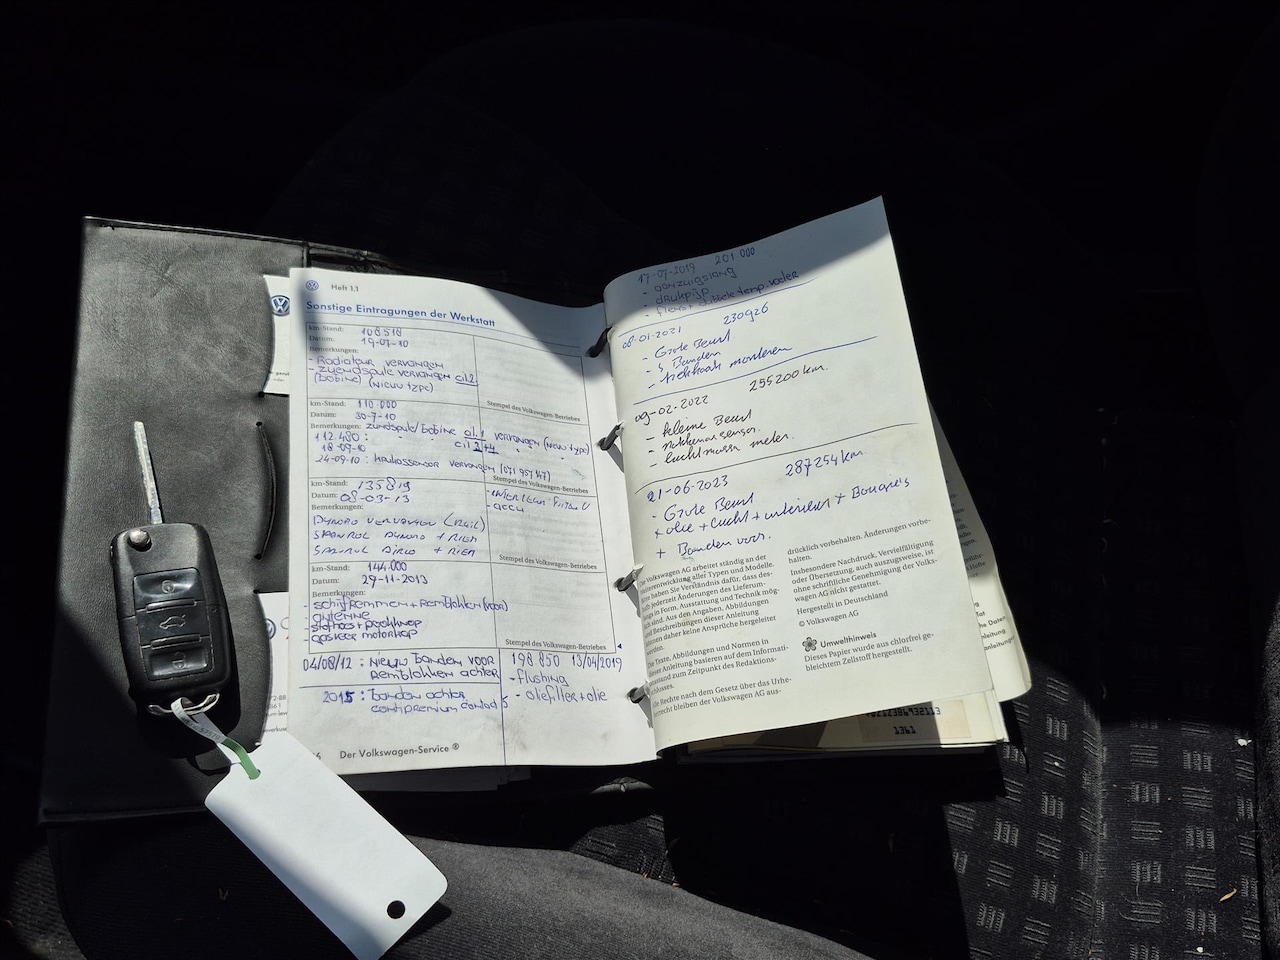 Heft 1.1
Sonstige Eintragungen der Werkstatt
km-Stand: 108518
Datum: 19-07-10
Bemerkungen:
- Radiateur vervangen
- zuendspule vervangen cil 2
(Bobine) (nieuw type)
Stempel des Volkswagen-Betriebes
km-Stand: 110 000
Datum: 30-7-10
Bemerkungen: zundspule/bobine cil.1 vervangen (nieuw type)
112.480: " " cil 3+4 " "
18-09-10
24-09-10: krukassensor vervangen (071 957 147)
Stempel des Volkswagen-Betriebes
km-Stand: 135819
Datum: 08-03-13
Bemerkungen:
- accu
Dynamo vervangen
Spanrol Dynamo + riem
Spanrol Airco + riem
Stempel des Volkswagen-Betriebes
km-Stand: 144.000
Datum: 29-11-2013
Bemerkungen:
- schijfremmen + remblokken (voor)
- antenne
- gasveer motorkap
Stempel des Volkswagen-Betriebes
04/08/12: nieuw banden voor
Remblokken achter
2015: banden achter
198 850 13/04/2019
- flushing
- oliefilter + olie
6 Der Volkswagen-Service ®
17-07-2019 201 000
- aanzuigslang
- drukpijp
08-01-2021 230926
- Grote Beurt
- Banden
- trekhaak monteren
09-02-2022 255200 km.
- kleine Beurt
- nokkenas sensor.
- luchtmassa meter.
21-06-2023 287254 km
- Grote Beurt
+ olie + lucht + interieur + Bougie's
+ Banden voor.
Volkswagen AG arbeitet ständig an der
Weiterentwicklung aller Typen und Modelle.
Bitte haben Sie Verständnis dafür, dass des-
halb jederzeit Änderungen des Lieferum-
fangs in Form, Ausstattung und Technik mög-
lich sind. Aus den Angaben, Abbildungen
und Beschreibungen dieser Anleitung
können daher keine Ansprüche hergeleitet
werden.
Die Texte, Abbildungen und Normen in
dieser Anleitung basieren auf dem Informati-
onsstand zum Zeitpunkt des Redaktions-
schlusses.
Alle Rechte nach dem Gesetz über das Urhe-
berrecht bleiben der Volkswagen AG aus-
drücklich vorbehalten. Änderungen vorbe-
halten.
Insbesondere Nachdruck, Vervielfältigung
oder Übersetzung, auch auszugsweise, ist
ohne schriftliche Genehmigung der Volks-
wagen AG nicht gestattet.
Hergestellt in Deutschland
© Volkswagen AG
Umwelthinweis
Dieses Papier wurde aus chlorfrei ge-
bleichtem Zellstoff hergestellt.
1361